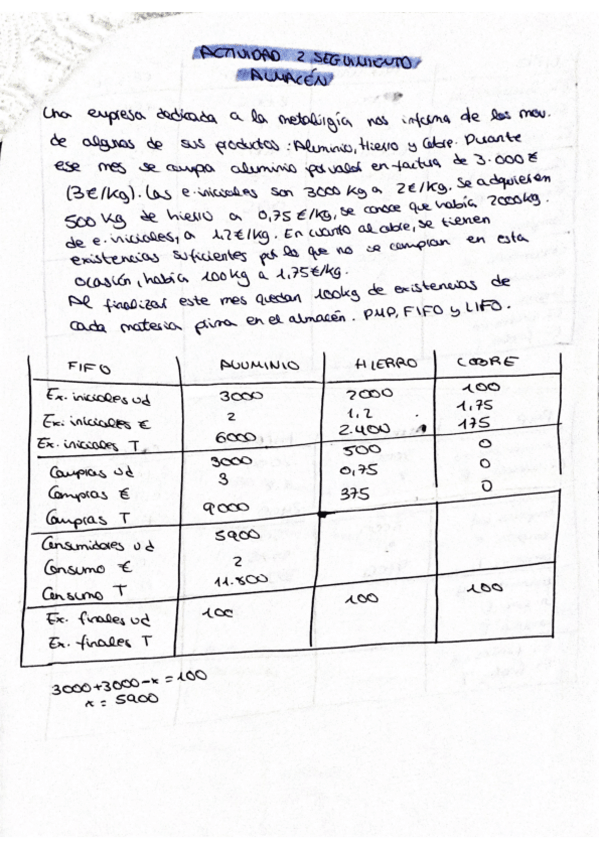 ACTIVIDAD 2 SEGUIMIENTO
ALMACÉN
Una empresa dedicada a la metalúrgia nos informa de los mov.
de algunos de sus productos: Aluminio, Hierro y Cobre. Durante
ese mes se compra aluminio por valor en factura de 3.000€
(3€/Kg). Las e. iniciales son 3000 Kg a 2€/Kg. Se adquieren
500 Kg de hierro a 0,75 €/Kg, se conoce que había 2000 kg.
de e. iniciales, a 1,2€/Kg. En cuanto al cobre, se tienen
existencias suficientes por lo que no se compran en esta
ocasión, había 100 kg a 1,75€/kg.
Al finalizar este mes quedan 100kg de existencias de
cada materia prima en el almacén. PMP, FIFO y LIFO.
FIFO ALUMINIO HIERRO COBRE
Ex. iniciales ud 3000 2000 100
Ex. iniciales € 2 1,2 1,75
Ex. iniciales T 6000 2.400 175
Compras ud 3000 500 0
Compras € 3 0,75 0
Compras T 9000 375 0
Consumidores ud 5900
Consumo € 2
Consumo T 11.800
Ex. finales ud 100 100 100
Ex. finales T
3000+3000-x = 100
x = 5900